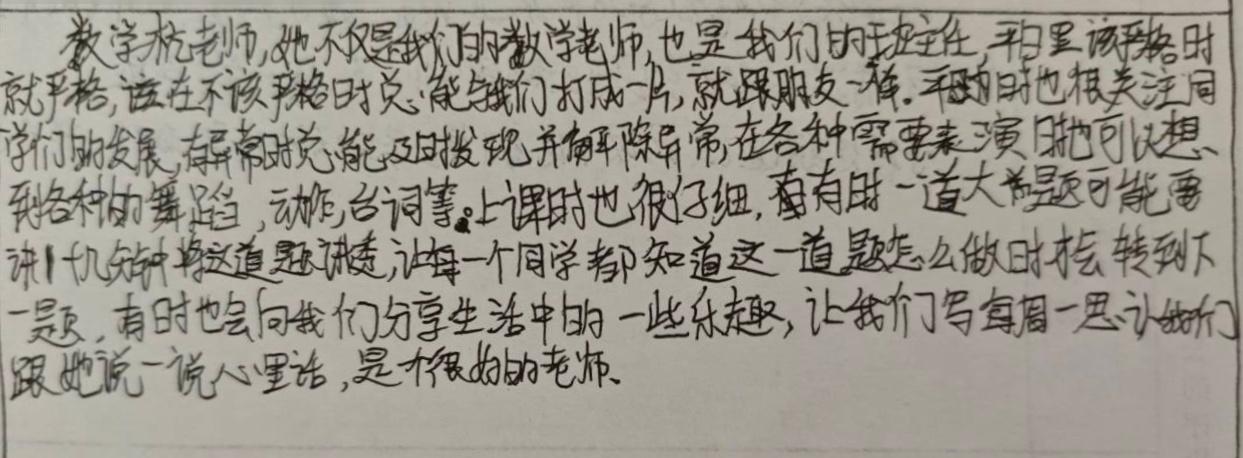 数学杭老师,她不仅是我们的数学老师,也是我们的班主任,平日里该严格时
就严格,在不该严格时总能与我们打成一片,就跟朋友一样。平时也很关注同
学们的发展,有异常时总能及时发现并解除异常,在各种需要表演时也可以想
到各种的舞蹈,动作,台词等。上课时也很仔细,有时一道大题可能要
讲十几分钟将这道题讲透,让每一个同学都知道这一道题怎么做时才会转到下
一题,有时也会向我们分享生活中的一些乐趣,让我们写每周一思让我们
跟她说一说心里话,是个很好的老师、